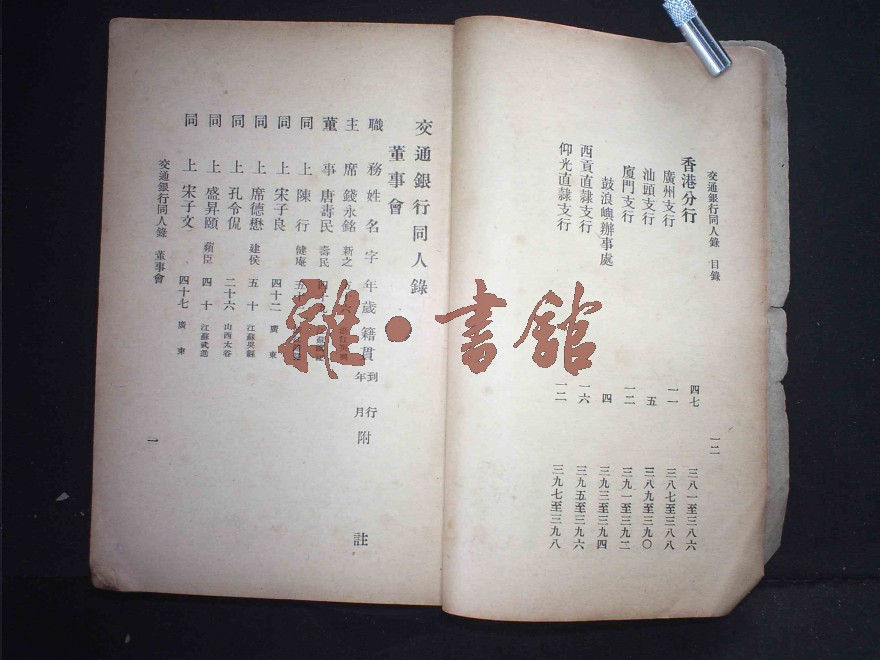 交通銀行同人錄 目錄
一二
香港分行 四七 三八一至三八六
廣州支行 一一 三八七至三八八
汕頭支行 五 三八九至三九〇
廈門支行 一二 三九一至三九二
鼓浪嶼辦事處 四 三九三至三九四
西貢直隷支行 一六 三九五至三九六
仰光直隷支行 一二 三九七至三九八
交通銀行同人錄
董事會
職務 姓名 字 年歲 籍貫 到行年月 附註
主席 錢永銘 新之
董事 唐壽民 壽民
同上 陳行 健庵
同上 宋子良 四十二 廣東
同上 席德懋 建侯 五十 江蘇吳縣
同上 孔令侃 二十六 山西太谷
同上 盛昇頤 蘋臣 四十 江蘇武進
同上 宋子文 四十七 廣東
交通銀行同人錄 董事會
一
雜·書館